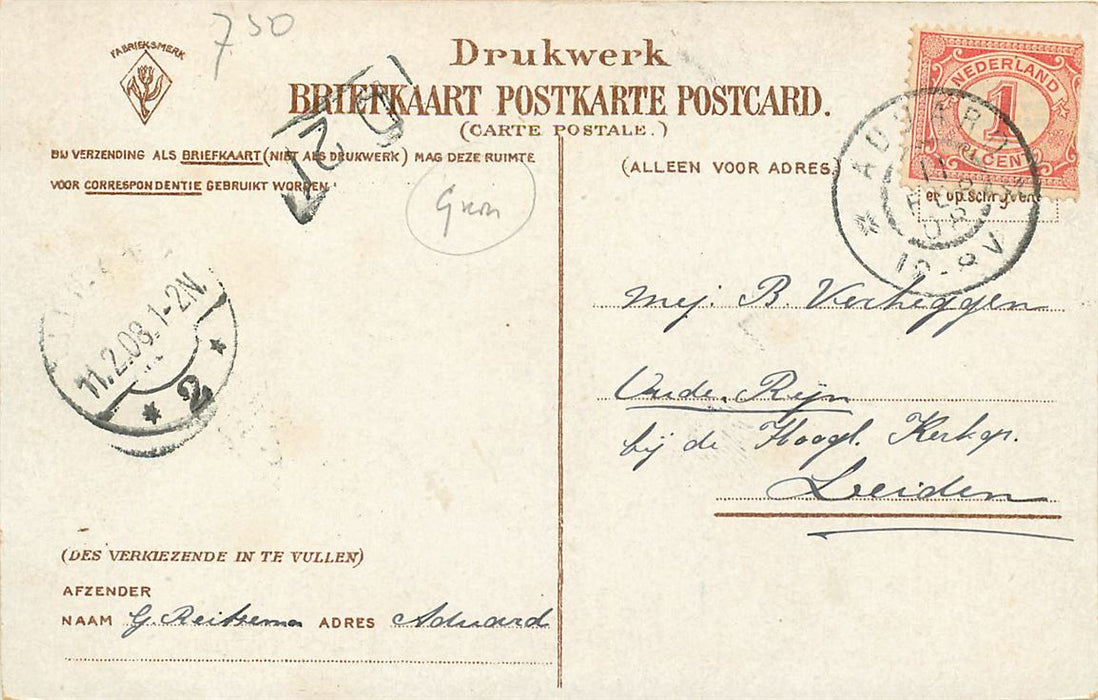 750
FABRIEKSMERK
Drukwerk
BRIEFKAART POSTKARTE POSTCARD.
(CARTE POSTALE.)
BIJ VERZENDING ALS BRIEFKAART (NIET ALS DRUKWERK) MAG DEZE RUIMTE
VOOR CORRESPONDENTIE GEBRUIKT WORDEN
Gron
(ALLEEN VOOR ADRES)
NEDERLAND
1
CENT
11
FEB
08
12-8V
er op schrijven
11.2.08.1-2N
2
Mej. B. Verheggen
Oude Rijn
bij de Hoogl. Kerkgr.
Leiden
(DES VERKIEZENDE IN TE VULLEN)
AFZENDER
NAAM G. Reitsema ADRES Aduard